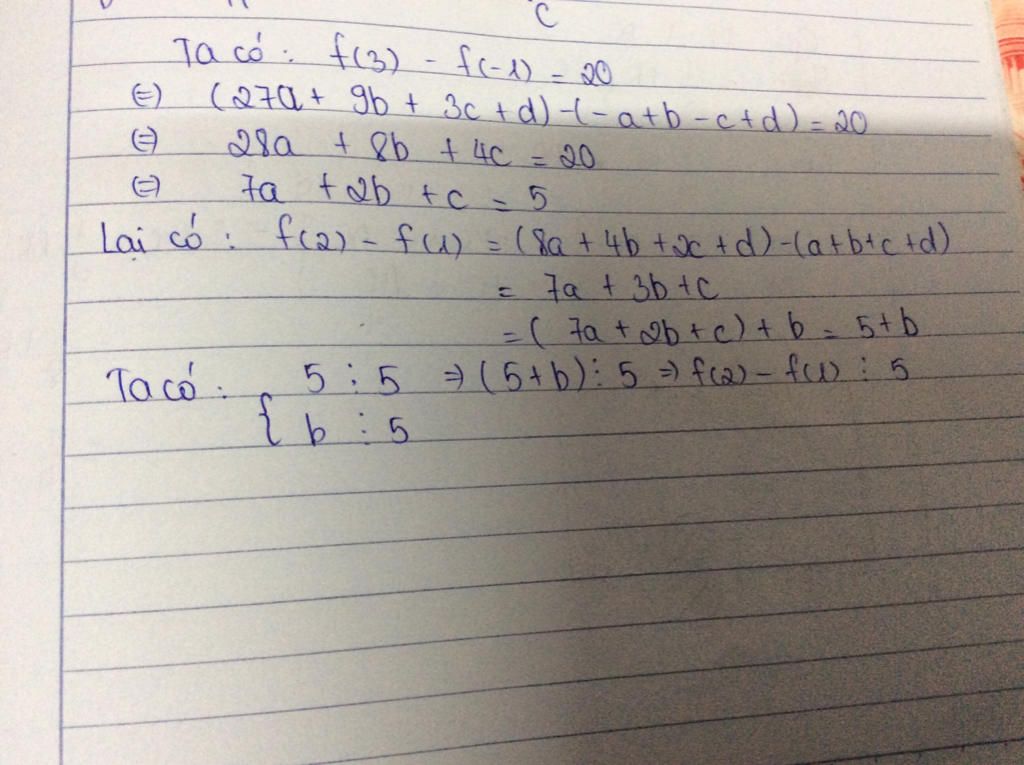 C
Ta có : f(3) - f(-1) = 20
(=) (27a + 9b + 3c + d) - (-a + b - c + d) = 20
(=) 28a + 8b + 4c = 20
(=) 7a + 2b + c = 5
Lại có : f(2) - f(1) = (8a + 4b + 2c + d) - (a + b + c + d)
= 7a + 3b + c
= ( 7a + 2b + c) + b = 5 + b
Ta có : { 5 ⋮ 5 => (5+b) ⋮ 5 => f(2) - f(1) ⋮ 5
b ⋮ 5